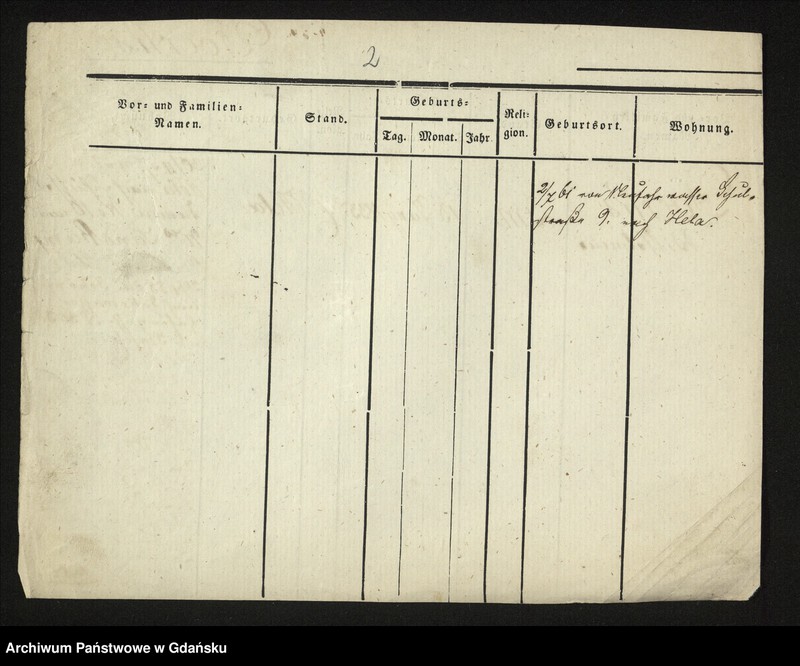 2
Vor- und Familien-
Namen.
Stand.
Geburts-
Tag.
Monat.
Jahr.
Reli-
gion.
Geburtsort.
Wohnung.
2/X 61 von Neufahrwasser Schul-
straße 9. nach Hela.
Archiwum Państwowe w Gdańsku